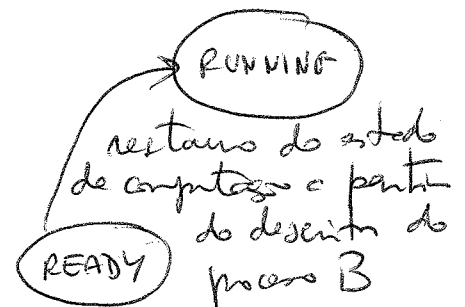 RUNNING
restauro do estado
de computação a partir
do descritor do
READY
processo B